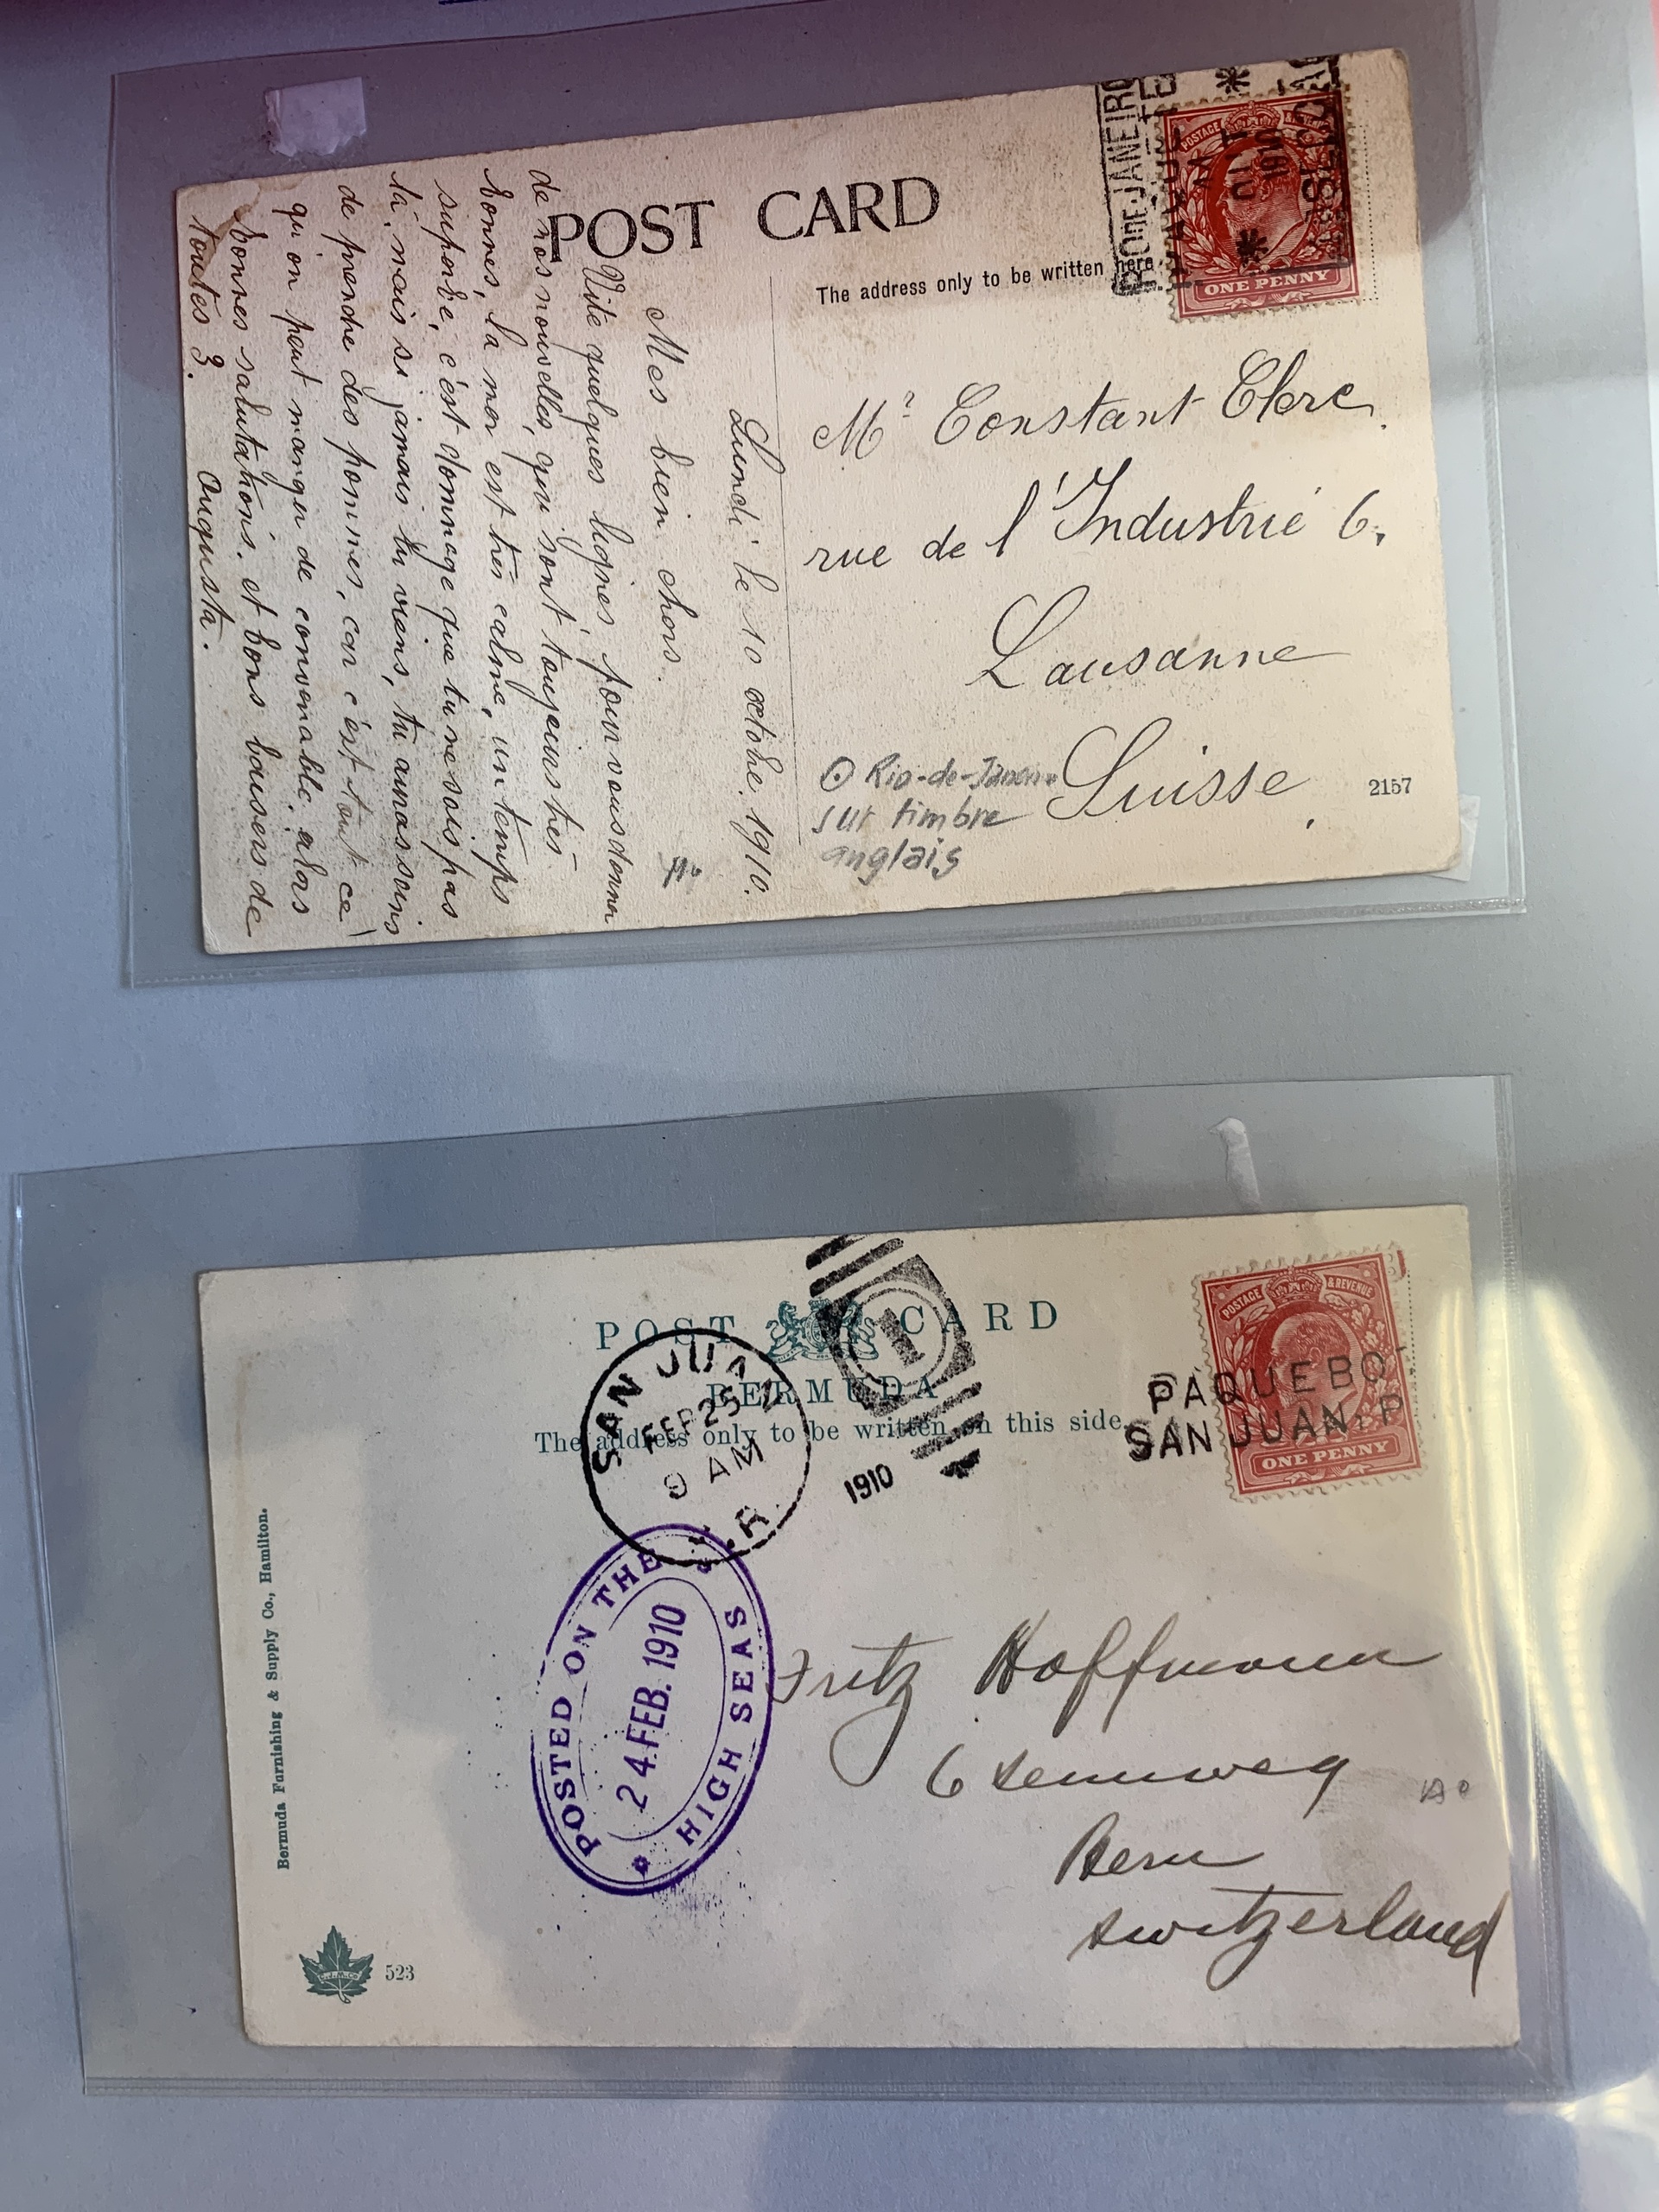 POST CARD
The address only to be written here
RIO DE JANEIRO
1910
POSTAGE & REVENUE
ONE PENNY
Mr Constant Clerc.
rue de l'Industrie 6,
Lausanne
Suisse,
2157
Rio-de-Janeiro
sur timbre
anglais
Lundi le 10 octobre. 1910.
Mes bien chers.
Vite quelques lignes pour vous donner
de nos nouvelles, qui sont toujours très
bonnes, la mer est très calme, un temps
superbe, c'est dommage que tu ne sois pas
là, mais si jamais tu viens, tu auras soin
de prendre des pommes, car c'est tout ce
qu'on peut manger de convenable. alors
bonnes salutations. et bons baisers de
toutes 3. Augusta.
POST CARD
BERMUDA
The address only to be written on this side.
SAN JUAN
FEB 25
9 AM
P.R.
1
1910
POSTAGE & REVENUE
PAQUEBOT
SAN JUAN, P
ONE PENNY
POSTED ON THE HIGH SEAS
24 FEB. 1910
Fritz Hoffmann
6 Sennweg
Bern
Switzerland
Bermuda Furnishing & Supply Co., Hamilton.
523